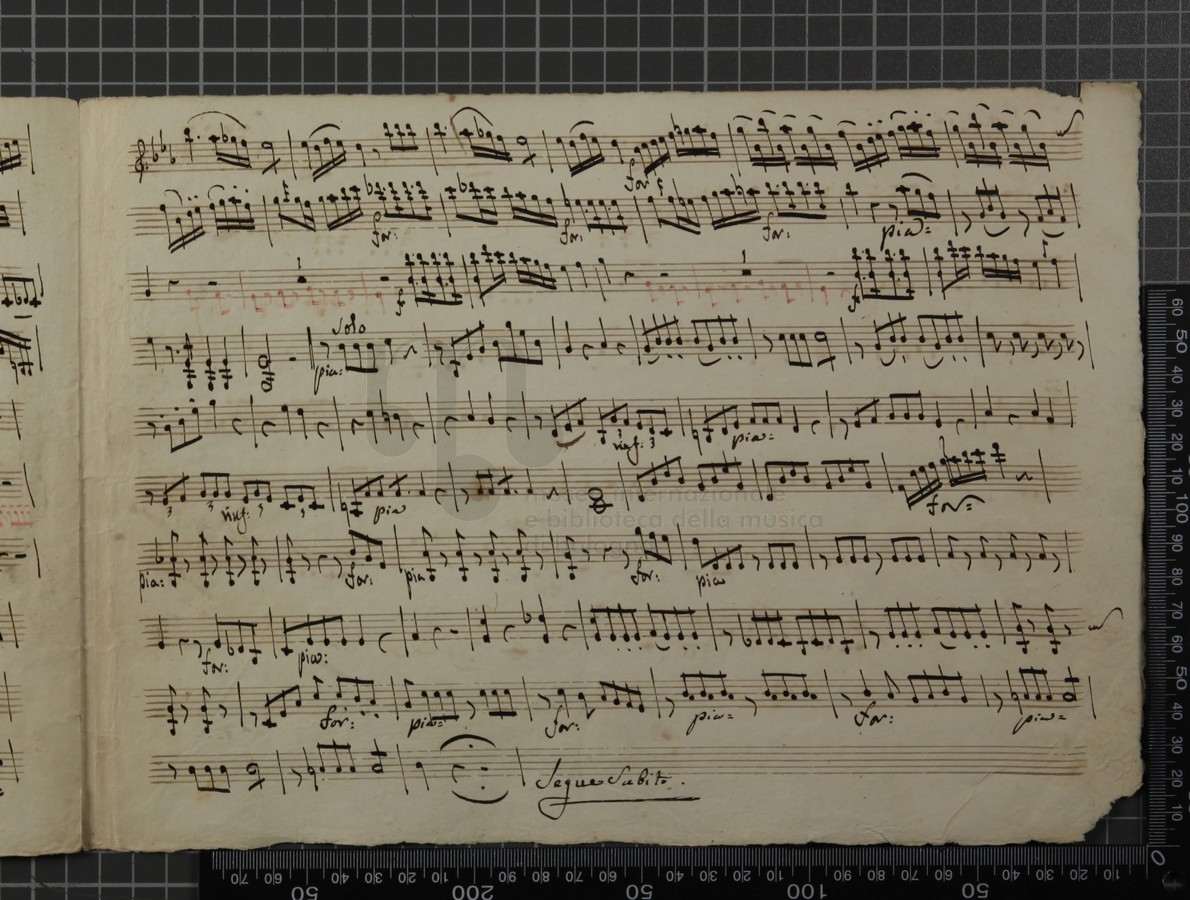 for:
for: for: for: pia:
1 1
f f
Solo
pia:
rinf: 3 3 pia:
3 3 rinf: 3 3 pia for:
museo internazionale
e biblioteca della musica
pia: for: pia for: pia
for: pia:
for: pia: for: pia: for: pia:
Segue Subito.
60 50 40 30 20 10 100 90 80 70 60 50 40 30 20 10 0
70 50 40 30 20 10 200 90 80 70 60 50 40 30 20 10 100 90 80 70 60 50 40 30 20 10 0